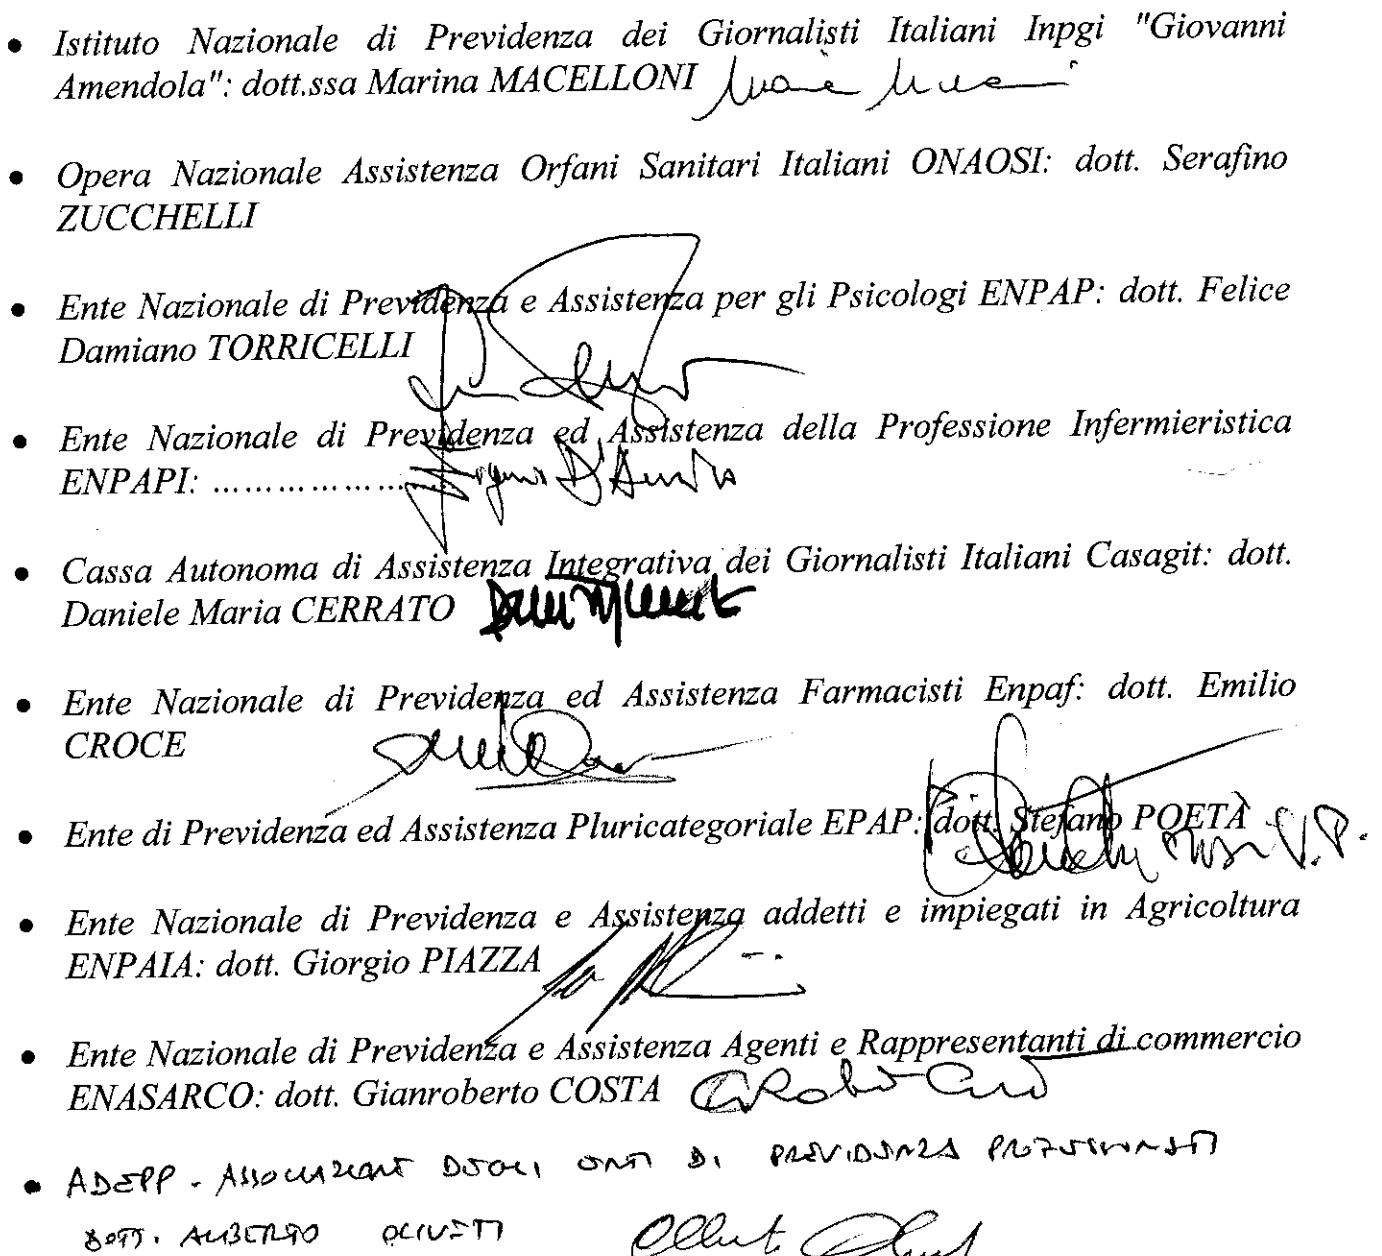 • Istituto Nazionale di Previdenza dei Giornalisti Italiani Inpgi "Giovanni
Amendola": dott.ssa Marina MACELLONI
• Opera Nazionale Assistenza Orfani Sanitari Italiani ONAOSI: dott. Serafino
ZUCCHELLI
• Ente Nazionale di Previdenza e Assistenza per gli Psicologi ENPAP: dott. Felice
Damiano TORRICELLI
• Ente Nazionale di Previdenza ed Assistenza della Professione Infermieristica
ENPAPI: …………………
• Cassa Autonoma di Assistenza Integrativa dei Giornalisti Italiani Casagit: dott.
Daniele Maria CERRATO
• Ente Nazionale di Previdenza ed Assistenza Farmacisti Enpaf: dott. Emilio
CROCE
• Ente di Previdenza ed Assistenza Pluricategoriale EPAP: dott. Stefano POETA
V.P.
• Ente Nazionale di Previdenza e Assistenza addetti e impiegati in Agricoltura
ENPAIA: dott. Giorgio PIAZZA
• Ente Nazionale di Previdenza e Assistenza Agenti e Rappresentanti di commercio
ENASARCO: dott. Gianroberto COSTA
• ADEPP - ASSOCIAZIONE DEGLI ENTI DI PREVIDENZA PROFESSIONISTI
DOTT. ALBERTO OLIVETI